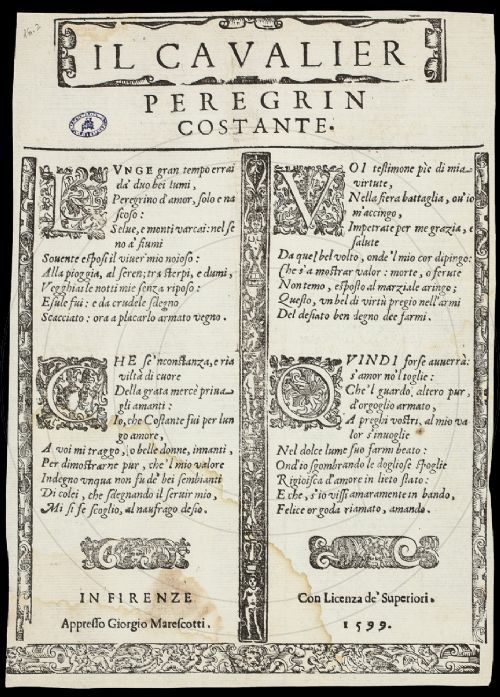 IL CAVALIER
PEREGRIN
COSTANTE.
LVNGE gran tempo errai
da' duo bei lumi,
Peregrino d'amor, solo e na
scoso:
Selue, e monti varcai: nel se
no a' fiumi
Souente esposi il viuer mio noioso:
Alla pioggia, al seren; tra sterpi, e dumi,
Vegghiai le notti mie senza riposo:
Esule fui: e da crudele sdegno
Scacciato: ora a placarlo armato vegno.
CHE se 'nconstanza, e ria
viltà di cuore
Della grata mercè priua
gli amanti:
Io, che Costante fui per lun
go amore,
A voi mi traggo, o belle donne, innanti,
Per dimostrarne pur, che 'l mio valore
Indegno vnqua non fu de' bei sembianti
Di colei, che sdegnando il seruir mio,
Mi si fe scoglio, al naufrago desio.
IN FIRENZE
Appresso Giorgio Marescotti.
VOI testimone pie di mia
virtute,
Nella fiera battaglia, ou'io
m'accingo,
Impetrate per me grazia, e
salute
Da quel bel volto, onde 'l mio cor dipingo:
Che s'a mostrar valor: morte, o ferute
Non temo, esposto al marziale aringo;
Questo, vn bel di virtù pregio nell'armi
Del desiato ben degno dee farmi.
QVINDI forse auuerrà:
s'amor no'l toglie:
Che'l guardo, altero pur,
d'orgoglio armato,
A preghi vostri, al mio va
lor s'inuoglie
Nel dolce lume suo farmi beato:
Ond'io sgombrando le dogliose spoglie
Rigioisca d'amore in lieto stato:
E che, s'io vissi amaramente in bando,
Felice or goda riamato, amando.
Con Licenza de' Superiori.
1599.